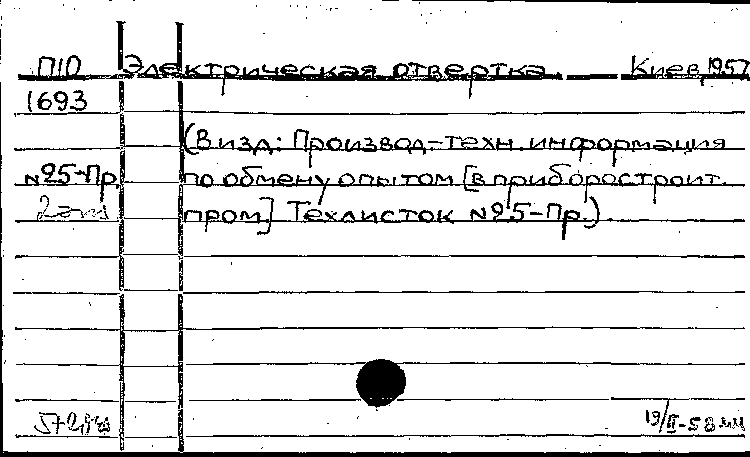 П10 Электрическая отвертка. Киев, 1957
1693
(В изд: Производ-техн. информация
№25-Пр. по обмену опытом [в приборостроит.
2 экз пром] Техлисток №25-Пр.)
19/II-58